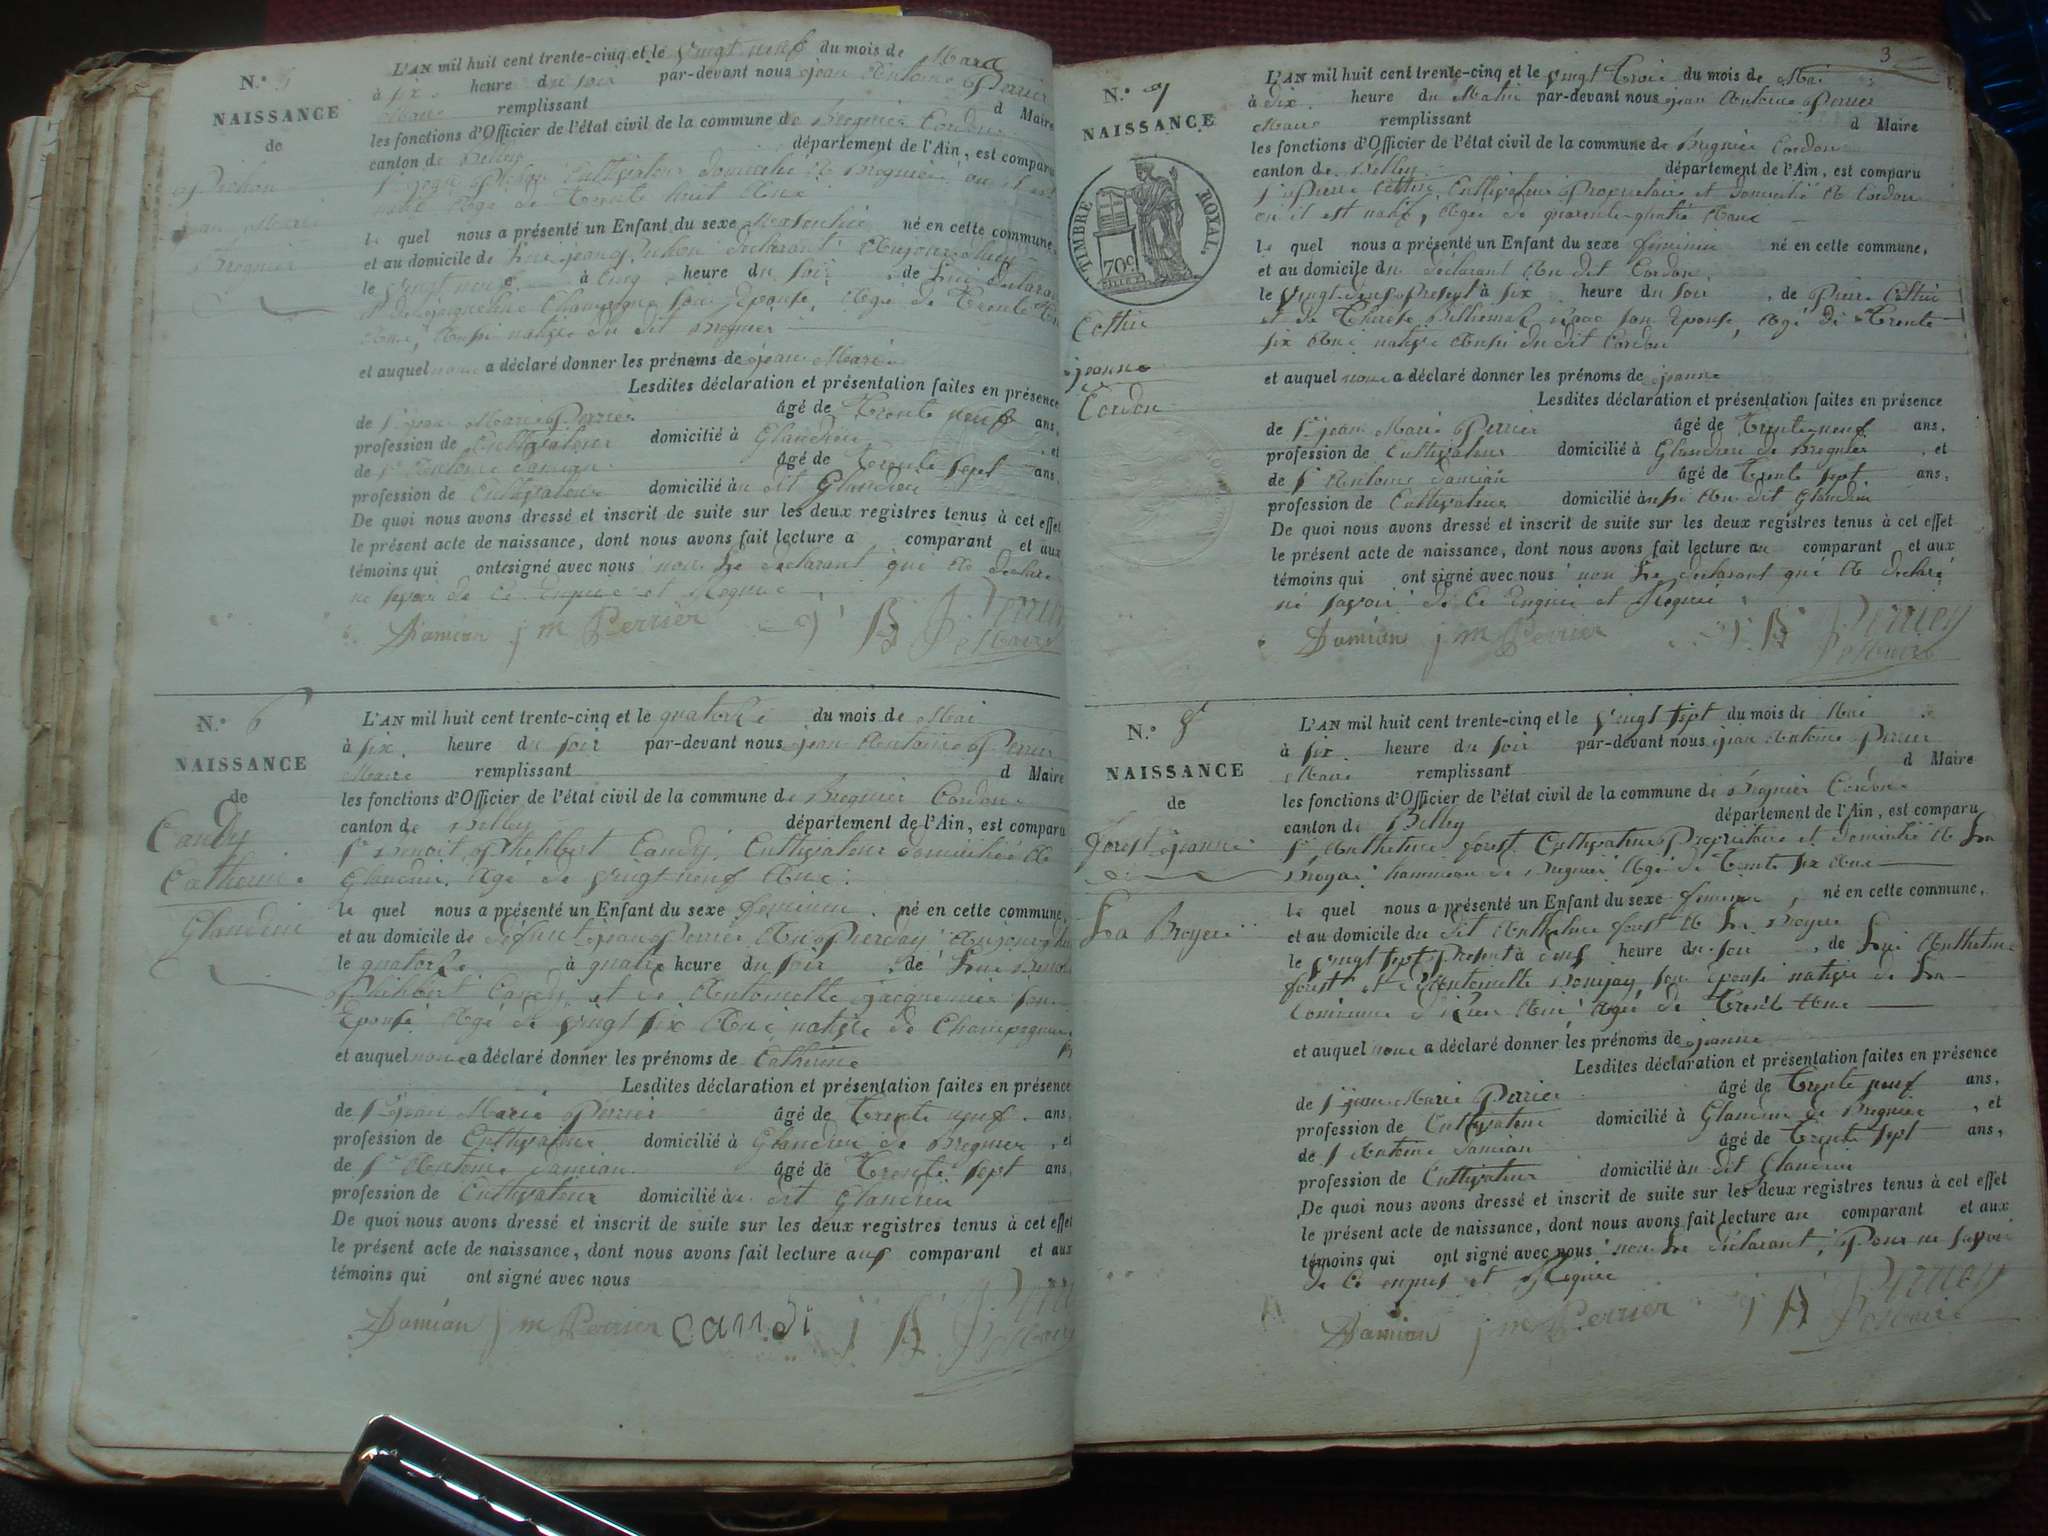 N.° 5
NAISSANCE
de
Jean Marie
Bregnier
L'AN mil huit cent trente-cinq et le vingt neuf du mois de Mars
à six heure du soir par-devant nous jean Antoine Perrier
Maire remplissant d Maire
les fonctions d'Officier de l'état civil de la commune de Bregnier Cordon
canton de Belley département de l'Ain, est comparu
Cultivateur domicilié à Bregnier où il est
natif Agé de Trente huit Ans
le quel nous a présenté un Enfant du sexe Masculin né en cette commune,
et au domicile de Aujourd'hui
le vingt neuf à cinq heure du soir, de Lui déclarant
son Epouse, Agée de Trente
et auquel nous a déclaré donner les prénoms de jean Marie
Lesdites déclaration et présentation faites en présence
de Sr jean Marie Perrier âgé de Trente neuf ans,
profession de Cultivateur domicilié à Glandieu, et
de Sr Antoine Damian âgé de Trente sept ans,
profession de Cultivateur domicilié au dit Glandieu
De quoi nous avons dressé et inscrit de suite sur les deux registres tenus à cet effet
le présent acte de naissance, dont nous avons fait lecture a comparant et aux
témoins qui ont signé avec nous non Le déclarant qui A déclaré
ne savoir de Ce Enquis et Requis
Damian j m Perrier j A Perrier
N.° 6
NAISSANCE
de
Candy
Catherine
Glandieu
L'AN mil huit cent trente-cinq et le quatorze du mois de Mai
à six heure du soir par-devant nous jean Antoine Perrier
Maire remplissant d Maire
les fonctions d'Officier de l'état civil de la commune de Bregnier Cordon
canton de Belley département de l'Ain, est comparu
Sr Benoit Philibert Candy, Cultivateur domicilié A
Glandieu, Agé de vingt neuf Ans
le quel nous a présenté un Enfant du sexe féminin, né en cette commune,
et au domicile de défunt jean Perrier Aujourd'hui
le quatorze à quatre heure du soir, de Lui Benoit
Philibert Candy et de Antoinette jacquemier son
Epouse Agé de vingt six Ans native de Champagneux
et auquel nous a déclaré donner les prénoms de Catherine
Lesdites déclaration et présentation faites en présence
de Sr jean Marie Perrier âgé de Trente neuf ans,
profession de Cultivateur domicilié à Glandieu de Bregnier, et
de Sr Antoine Damian âgé de Trente sept ans,
profession de Cultivateur domicilié au dit Glandieu
De quoi nous avons dressé et inscrit de suite sur les deux registres tenus à cet effet
le présent acte de naissance, dont nous avons fait lecture aux comparant et aux
témoins qui ont signé avec nous
Damian j m Perrier candi j A Perrier
3
N.° 7
NAISSANCE
TIMBRE ROYAL
70c
Cottin
jeanne
Cordon
L'AN mil huit cent trente-cinq et le vingt Trois du mois de Mai
à dix heure du Matin par-devant nous jean Antoine Perrier
Maire remplissant d Maire
les fonctions d'Officier de l'état civil de la commune de Bregnier Cordon
canton de Belley département de l'Ain, est comparu
Sr Pierre Cottin, Cultivateur Propriétaire et domicilié A Cordon
où il est natif, Agée de quarente-quatre Ans
le quel nous a présenté un Enfant du sexe féminin né en cette commune,
et au domicile du déclarant Au dit Cordon
le vingt deux Présent à six heure du soir, de Pierre Cottin
et de Thérèse son Epouse, Agé de Trente
six Ans native Aussi du dit Cordon
et auquel nous a déclaré donner les prénoms de jeanne
Lesdites déclaration et présentation faites en présence
de Sr jean Marie Perrier âgé de Trente neuf ans,
profession de Cultivateur domicilié à Glandieu de Bregnier, et
de Sr Antoine Damian âgé de Trente sept ans,
profession de Cultivateur domicilié aussi Au dit Glandieu
De quoi nous avons dressé et inscrit de suite sur les deux registres tenus à cet effet
le présent acte de naissance, dont nous avons fait lecture au comparant et aux
témoins qui ont signé avec nous non Le déclarant qui A déclaré
ne savoir de Ce Enquis et Requis
Damian j m Perrier j A Perrier
N.° 8
NAISSANCE
de
forest jeanne
La Broyere
L'AN mil huit cent trente-cinq et le vingt sept du mois de Mai
à six heure du soir par-devant nous jean Antoine Perrier
Maire remplissant d Maire
les fonctions d'Officier de l'état civil de la commune de Bregnier Cordon
canton de Belley département de l'Ain, est comparu
Sr Anthelme forest Cultivateur Propriétaire et domicilié A La
hammeau de Bregnier Agé de Trente six Ans
le quel nous a présenté un Enfant du sexe féminin, né en cette commune,
et au domicile du dit Anthelme forest A La Broyere
le vingt sept Présent à deux heure du soir, de Lui Anthelme
forest et d'Antoinette son Epouse native de La
Commune d'Izieu Agée de Trente Ans
et auquel nous a déclaré donner les prénoms de jeanne
Lesdites déclaration et présentation faites en présence
de Sr jean Marie Perrier âgé de Trente neuf ans,
profession de Cultivateur domicilié à Glandieu de Bregnier, et
de Sr Antoine Damian âgé de Trente sept ans,
profession de Cultivateur domicilié au dit Glandieu
De quoi nous avons dressé et inscrit de suite sur les deux registres tenus à cet effet
le présent acte de naissance, dont nous avons fait lecture au comparant et aux
témoins qui ont signé avec nous non Le déclarant, Pour ne savoir
de Ce enquis et Requis
Damian j m Perrier j A Perrier